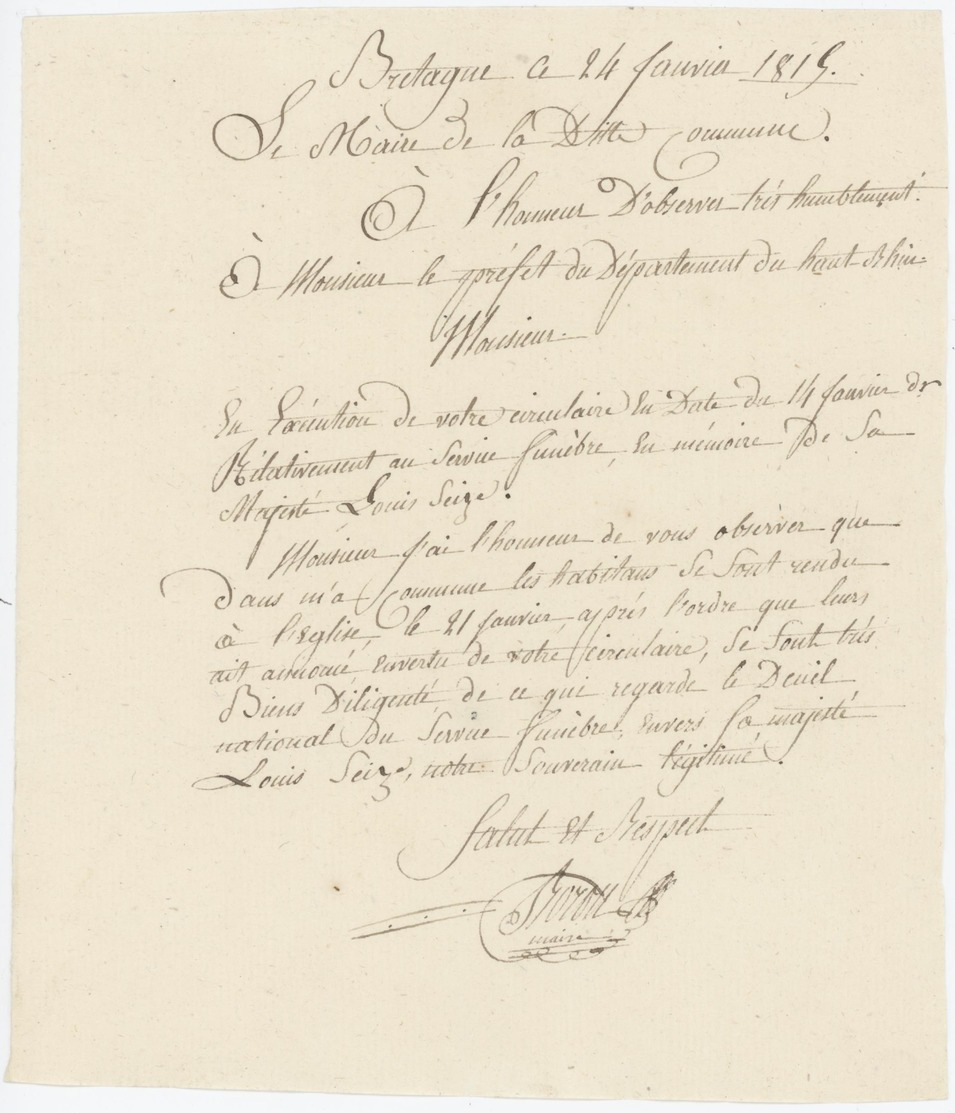 Bretagne ce 24 Janvier 1815.
Le Maire de la Ditte Commune.
À l'honneur D'observer trés humblement.
À Monsieur le préfet du Département du haut Rhin.
Monsieur.
En Exécution de votre circulaire En Date du 14 Janvier dr
Rélativement au Service funèbre, En mémoire De Sa
Majesté Louis Seize.
Monsieur J'ai l'honneur de vous observer que
dans m'a Commune les habitans Se Sont rendu
à l'Eglise, le 21 Janvier, aprés l'ordre que leurs
ait annoncé, Envertu de votre circulaire, Se Sont trés
Biens Diligenté, de ce qui regarde le Deuil
national Du Service funèbre, Envers Sa majesté
Louis Seize, notre Souverain légitime.
Salut Et Respect
maire